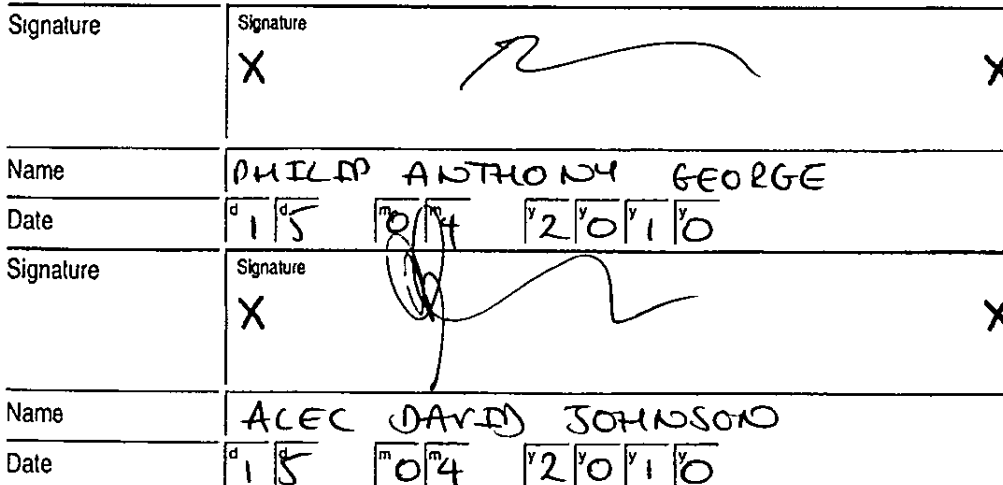 Signature Signature
X X
Name PHILIP ANTHONY GEORGE
Date d1 d5 m0 m4 y2 y0 y1 y0
Signature Signature
X X
Name ALEC DAVID JOHNSON
Date d1 d5 m0 m4 y2 y0 y1 y0